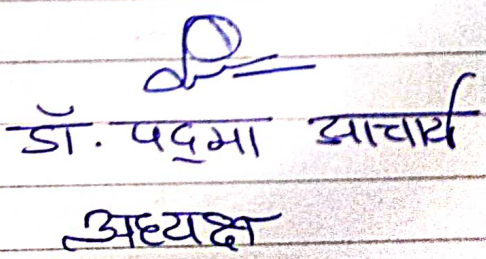 डॉ. पद्मा आचार्य
अध्यक्ष